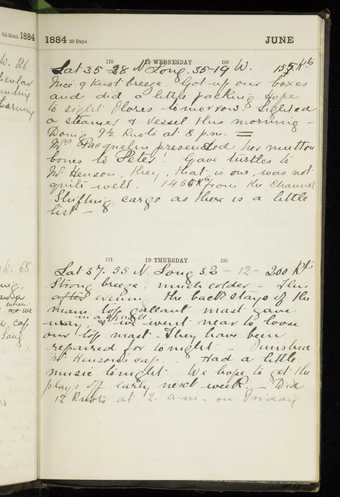 1884 30 Days JUNE
WEDNESDAY
Lat 35 28 N Long. 35-19 W. 155 Kts
Nice quiet breeze. Got up our boxes
and did a little packing. Hope
to sight Flores tomorrow. Sighted
a steamer & vessel this morning -
Doing 9½ Knots at 8 p.m.
Mrs presented her mutton
bones to Pete! Gave turtles to
Mr Henson, they, that is one, was not
quite well. from the Channel
Shifting cargo as there is a little
list -
19 THURSDAY
Lat 37. 35 N Long 32 - 12 - 200 Kts
Strong breeze: much colder - This
after evening the back stays of the
main top gallant mast gave
way, in a squall & we went near to loose
our top mast - They have been
repaired for tonight -
Mr Henson's cap. - Had a little
music tonight. We hope to get the
plays off early next week - Did
12 Knots at 2 a.m. on Friday